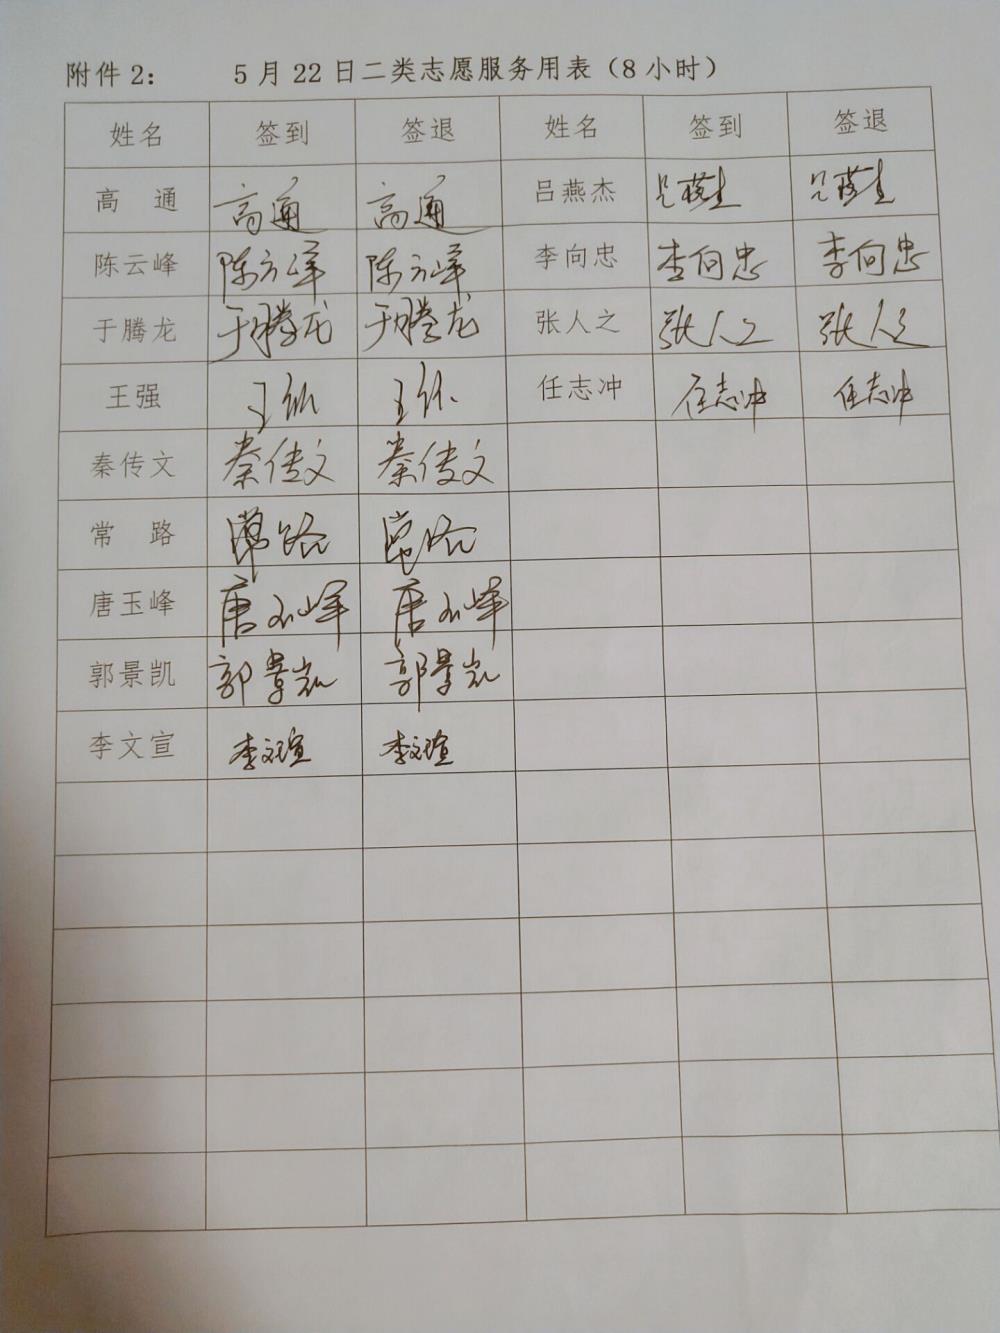 附件2： 5月22日二类志愿服务用表（8小时）
姓名 签到 签退 姓名 签到 签退
高 通 高通 高通 吕燕杰
陈云峰 陈云峰 陈云峰 李向忠 李向忠 李向忠
于腾龙 于腾龙 于腾龙 张人之 张人之 张人之
王强 王强 王强 任志冲 任志冲 任志冲
秦传文 秦传文 秦传文
常 路 常路 常路
唐玉峰 唐玉峰 唐玉峰
郭景凯 郭景凯 郭景凯
李文宣 李文瑄 李文瑄